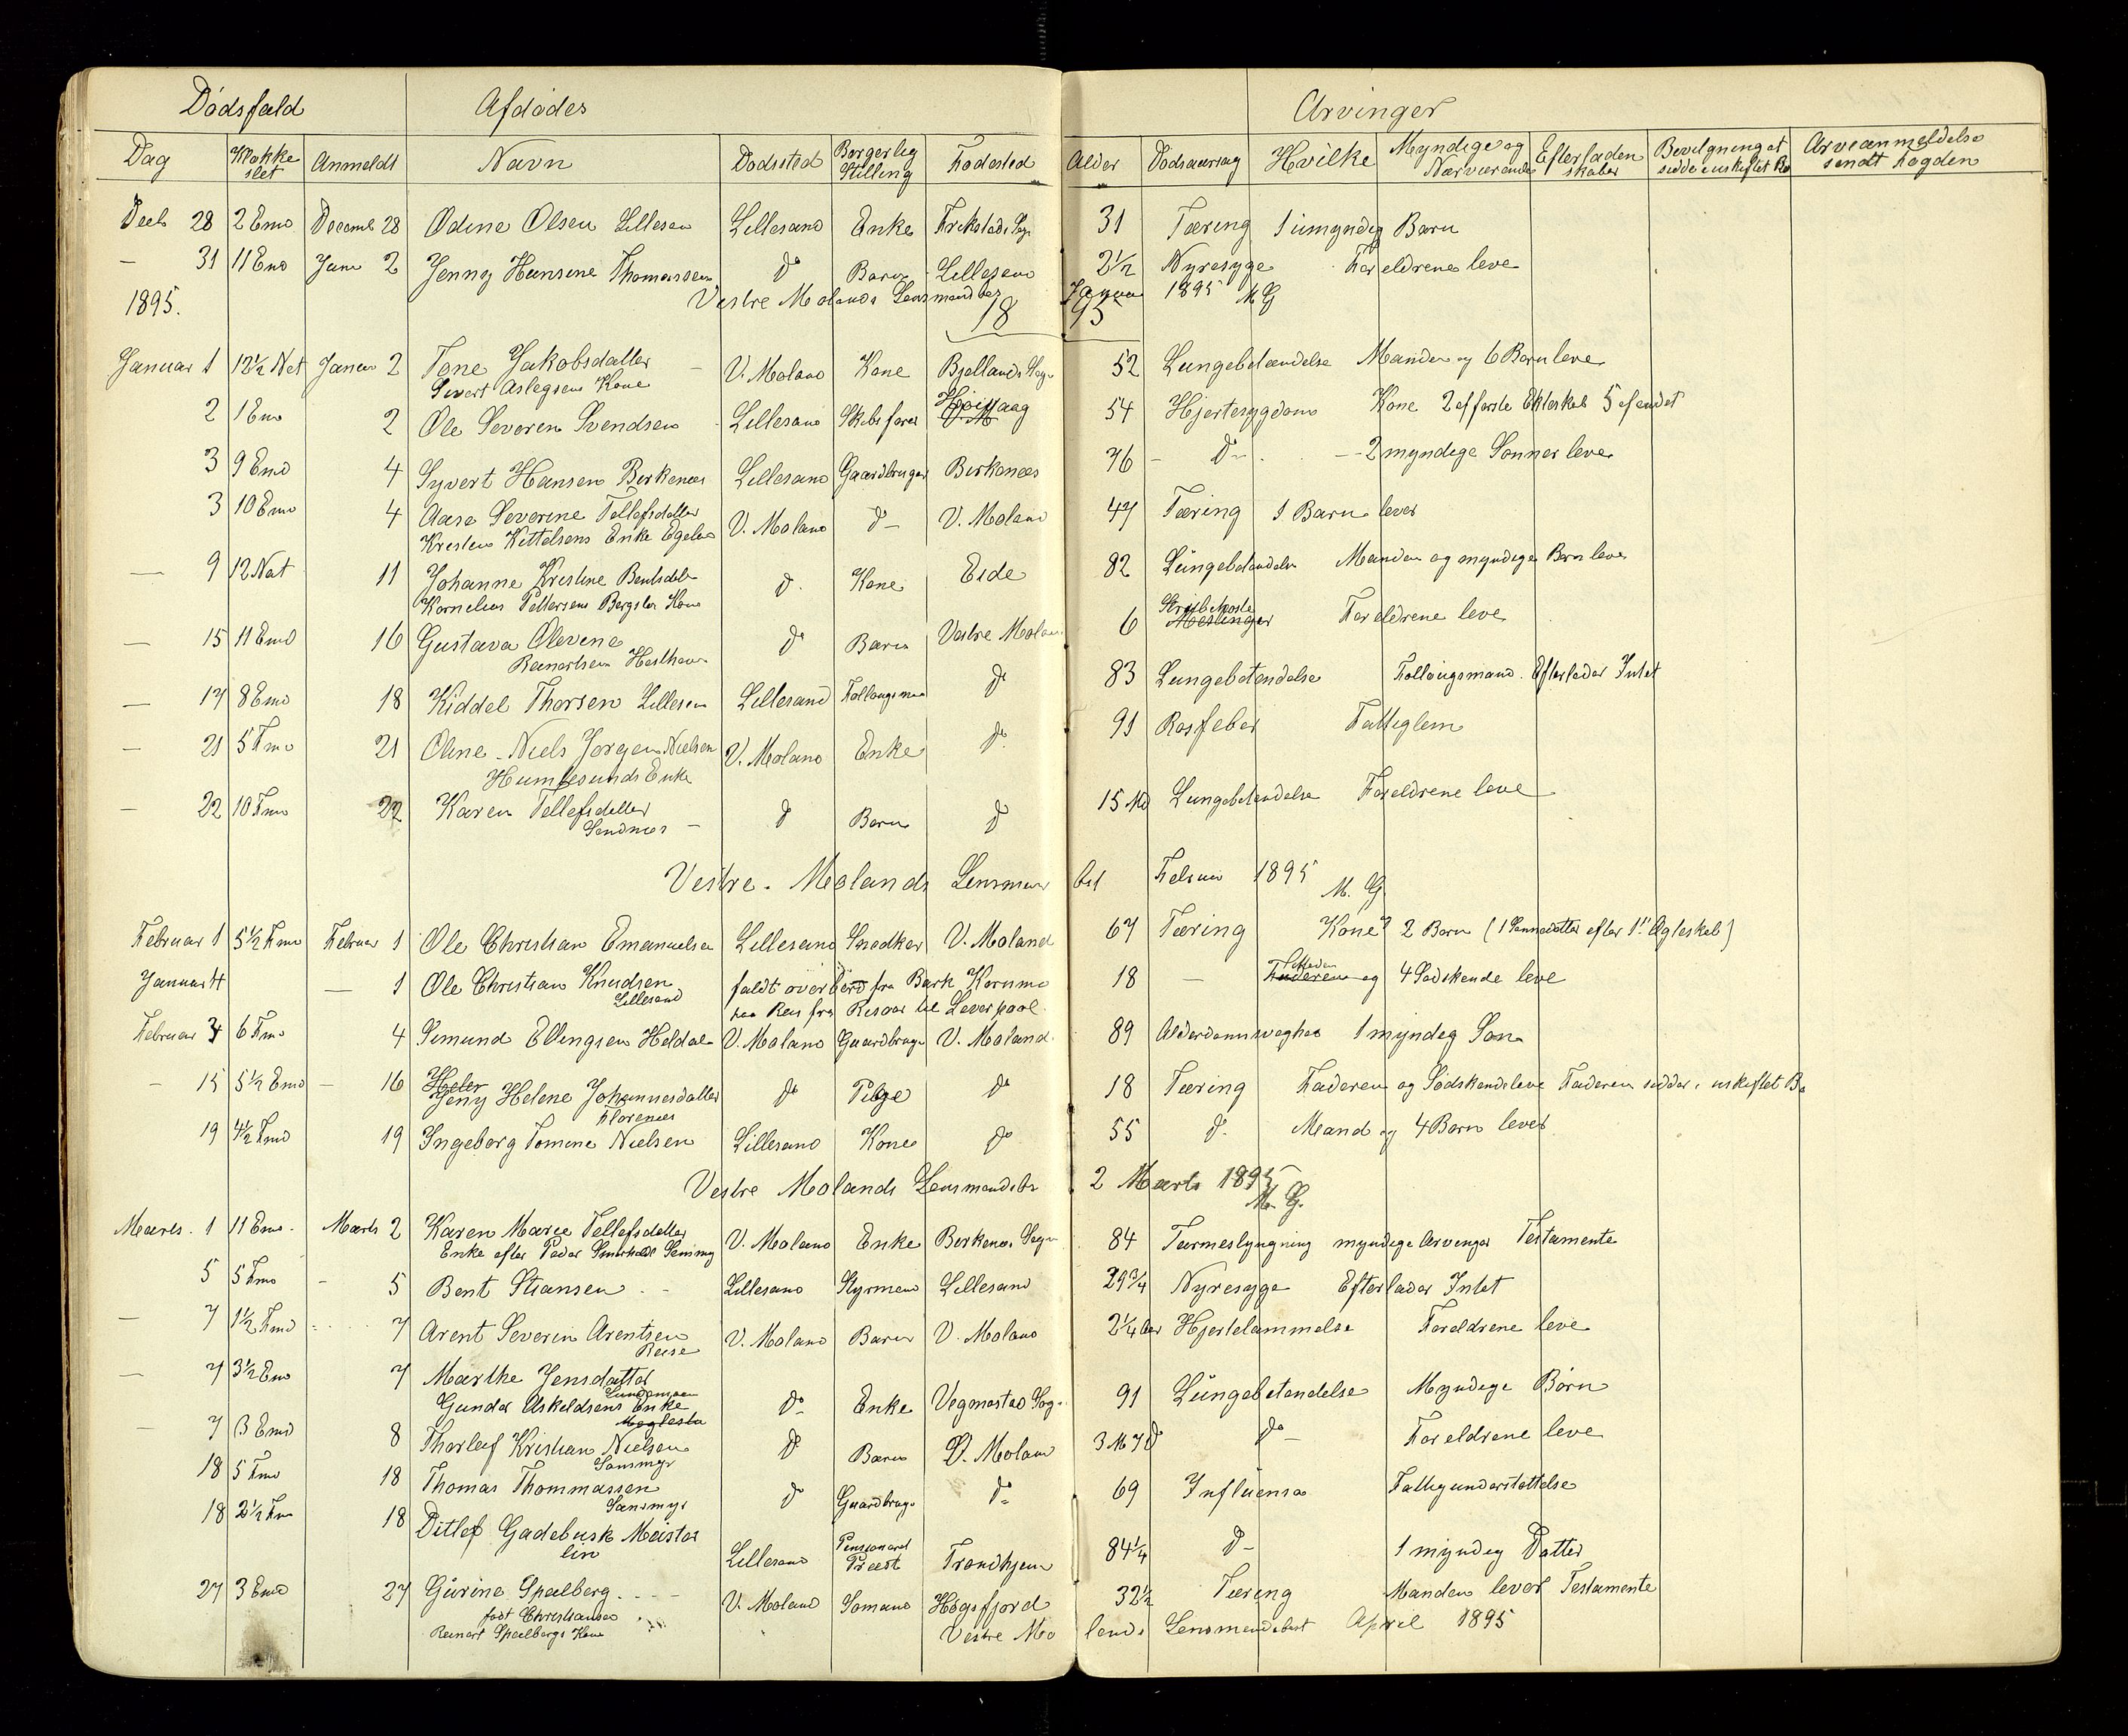 Dødsfald Afdødes Arvinger
Dag Klokke slet Anmeldt Navn Dødssted Borgerlig Stilling Fødested Alder Dødsaarsag Hvilke Myndige og Nærværende Efterladenskaber Bevilgning at sidde i uskiftet Bo Arveanmeldelse sendt Fogden
Decb 28 2 Emd Decemb 28 Odine Olsen Lillesan Lillesand Enke 31 Tæring 1 umyndig Barn
— 31 11 Emd Janu 2 Jenny Hansine Thomassen do Barn Lillesand 2½ Nyresyge Forældrene leve
Vestre Molands Lensmandsbes Januar 1895 M G
1895. 1895
Januar 1 12½ Nat Januar 2 Tone Jakobsdatter V. Moland Kone Bjellands Sogn 52 Lungebetændelse Manden og 6 Børn leve
Sivert Aslegsens Kone
2 1 Emd 2 Ole Severen Svendsen Lillesand Skibsfører Høivaag 54 Hjertesygdom Kone 2 af første Ekteskab 5 af andet
3 9 Emd 4 Syvert Hansen Birkenæs Lillesand Gaardbruger Birkenæs 76 — do — 2 myndige Sønner lever
3 10 Emd 4 Aase Severine Tellefsdatter V. Moland do V. Moland 47 Tæring 1 Barn lever
Kristen Kittelsens Enke
— 9 12 Nat 11 Johanne Kristine Bentsdatr do Kone Eide 82 Lungebetændelse Manden og myndige Børn leve
Kornelius Pettersens Bergstø Kone
— 15 11 Emd 16 Gustava Olevene do Barn Vestre Molan 6 Strubehoste Meslinger Forældrene leve
Reinertsen
— 17 8 Emd 18 Kiddel Thorsen Lillesan Lillesand do 83 Lungebetændelse Efterlader Intet
— 21 5 Fmd 21 Oline Niels Jørgen Nielsen V. Moland Enke do 91 Rosfeber Fattiglem
Humlesunds Enke
— 22 10 Fmd 22 Karen Tellefsdatter do Barn do 15 Md Lungebetændelse Forældrene leve
Vestre Molands Lensmans bst Februar 1895 M. G
Februar 1 5½ Fmd Februar 1 Ole Christian Emanuelsen Lillesand Snedker V. Moland 67 Tæring Kone? 2 Børn (1 Sønnedatter efter 1ste Ægteskab)
Januar 4 — 1 Ole Christian Knudsen faldt overbord fra Bark 18 — Faderen og 4 Sødskende leve
Lillesand paa Reis fra Risøør til Leverpool
Februar 3 6 Fmd 4 Simund Ellingsen Heldal V. Moland Gaardbruge V. Moland. 89 Alderdomssvaghed 1 myndig Søn
— 15 5½ Emd — 16 Jeny Helene Johannesdatter do Pige do 18 Tæring Faderen og Sødskende leve Faderen sidder i uskiftet Bo
19 4½ Fmd 19 Ingeborg Tomine Nielsen Lillesand Kone do 55 do Mand og 4 Børn lever
Vestre Molands Lensmandsbs 2 Marts 1895 M. G.
Marts. 1 11 Emd Marts 2 Karen Marie Tellefsdatter V. Moland Enke Birkenæs Sogn 84 Tarmeslyngning myndige Arvinger Testamente
Enke efter Peder
5 5 Fmd — 5 Bent Stiansen Lillesand Styrmand Lillesand 29¾ Nyresyge Efterlader Intet
— 7 1½ Fmd 7 Arent Severin Arentsen V. Moland Barn V. Moland 2¼ aar Hjertelammelse Forældrene leve
— 7 3½ Emd 7 Marthe Jensdatter
Gunder Askeldsens Enke do Enke Vegnasted Sogn 91 Lungebetændelse Myndige Børn
— 7 3 Emd 8 Thorleif Kristian Nielsen do Barn V. Moland 3 M 7 D do Forældrene leve
18 5 Fmd 18 Thomas Thommassen do Gaardbruge do 69 Influensa Fattigunderstøttelse
18 2½ Fm 18 Ditlef Gadebusk Meister Lillesand Pensioneret Præst Trondhjem 84¼ do 1 myndig Datter
lin
27 3 Emd 27 Gurine Spælberg V. Moland Somand Høgsfjord 32½ Tæring Manden lever Testamente
født Christiansen
Reinert Spælbergs Kone Vestre Molands Lensmandsbst April 1895